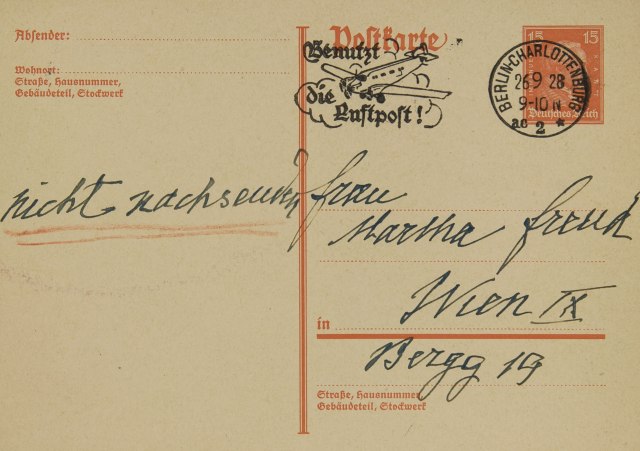 Absender:
Wohnort:
Straße, Hausnummer,
Gebäudeteil, Stockwerk
Postkarte
Benutzt
die
Luftpost!
BERLIN-CHARLOTTENBURG
26.9 28
9-10 N
ac 2 *
15 15
Deutsches Reich
nicht nachsenden
Frau
Martha Freud
Wien IX
in
Bergg 19
Straße, Hausnummer,
Gebäudeteil, Stockwerk